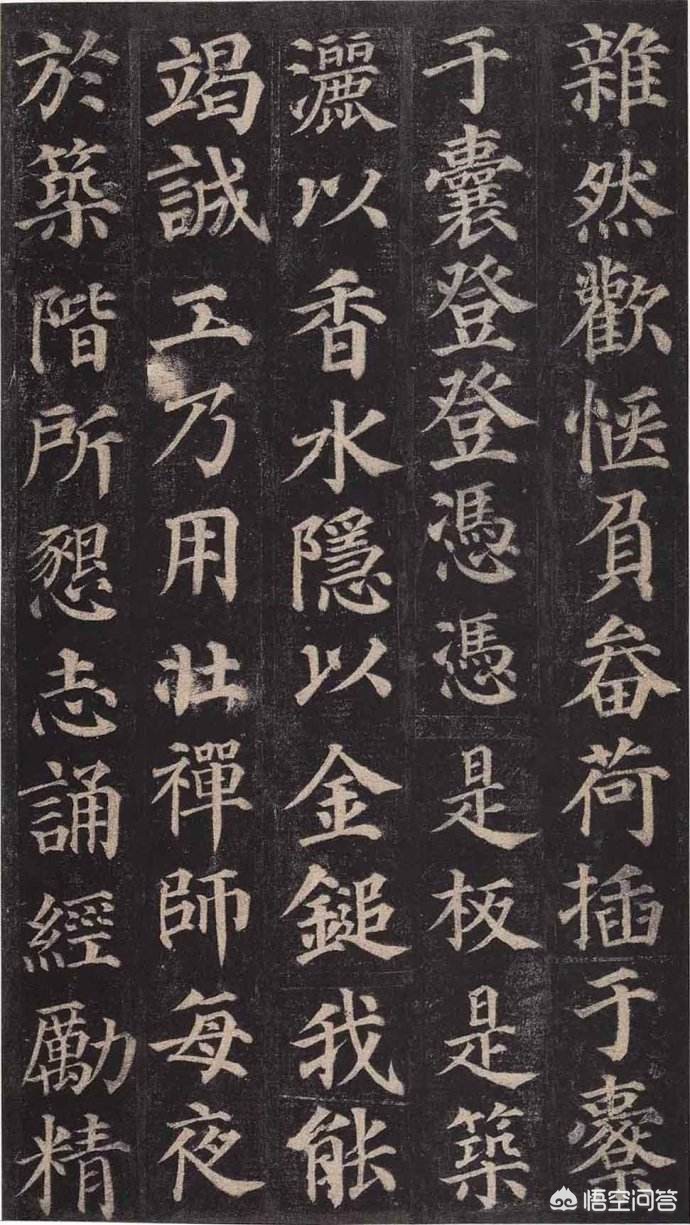 雜然歡愜負畚荷插于橐
于囊登登憑憑是板是築
灑以香水隱以金鎚我能
竭誠工乃用壯禪師每夜
於築階所懇志誦經勵精
悟空问答